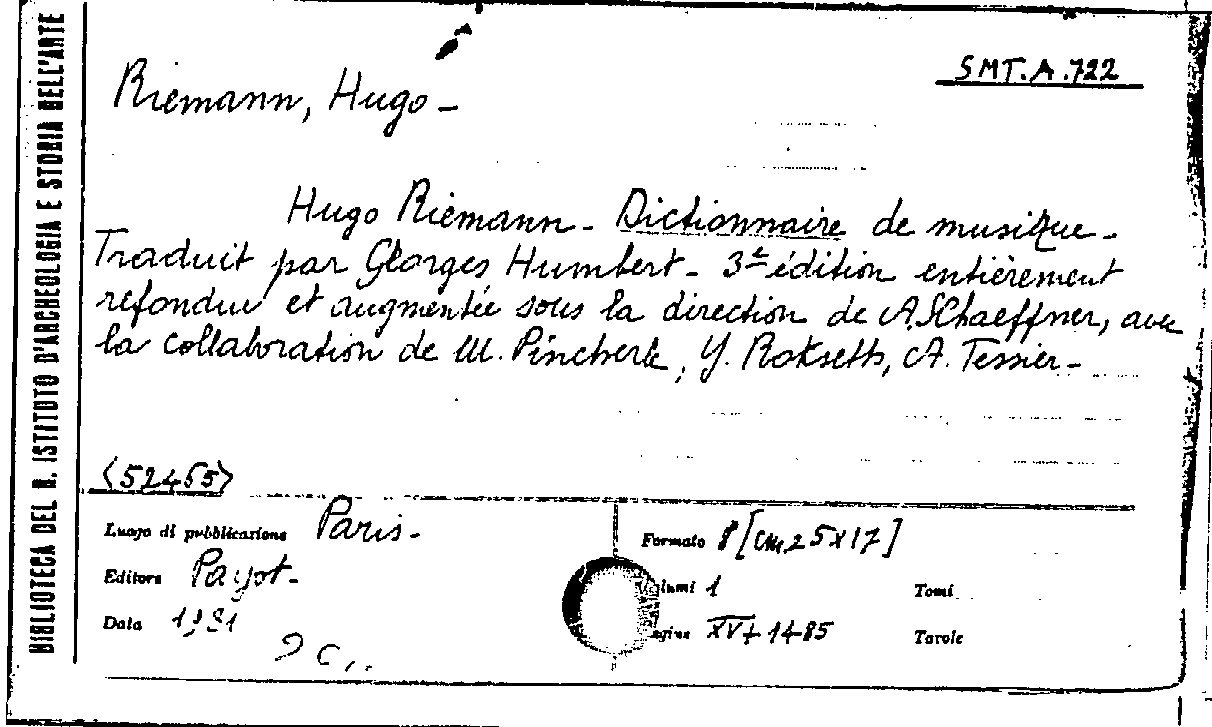 BIBLIOTECA DEL R. ISTITUTO D'ARCHEOLOGIA E STORIA DELL'ARTE
SMT.A.722
Riemann, Hugo -
Hugo Riemann - Dictionnaire de musique -
Traduit par Georges Humbert - 3e édition entièrement
refondue et augmentée sous la direction de A. Schaeffner, avec
la collaboration de M. Pincherle, Y. Rokseth, A. Tessier -
<52455>
Luogo di pubblicazione Paris -
Editore Payot -
Data 1931
Formato 8 [cm 25x17]
lumi 1
Tomi
agine XV+1485
Tavole